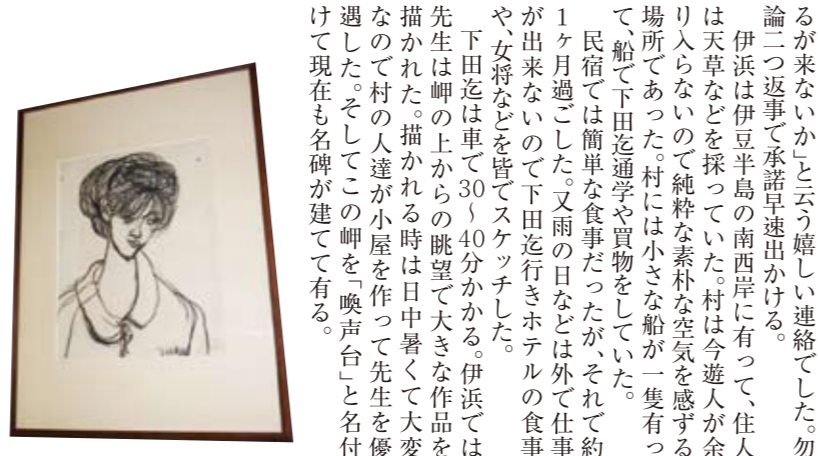 るが来ないか」と云う嬉しい連絡でした。勿
論二つ返事で承諾早速出かける。
伊浜は伊豆半島の南西岸に有って、住人
は天草などを採っていた。村は今遊人が余
り入らないので純粋な素朴な空気を感ずる
場所であった。村には小さな船が一隻有っ
て、船で下田迄通学や買物をしていた。
民宿では簡単な食事だったが、それで約
1ヶ月過ごした。又雨の日などは外で仕事
が出来ないので下田迄行きホテルの食事
や、女将などを皆でスケッチした。
下田迄は車で30〜40分かかる。伊浜では
先生は岬の上からの眺望で大きな作品を
描かれた。描かれる時は日中暑くて大変
なので村の人達が小屋を作って先生を優
遇した。そしてこの岬を「喚声台」と名付
けて現在も名碑が建てて有る。